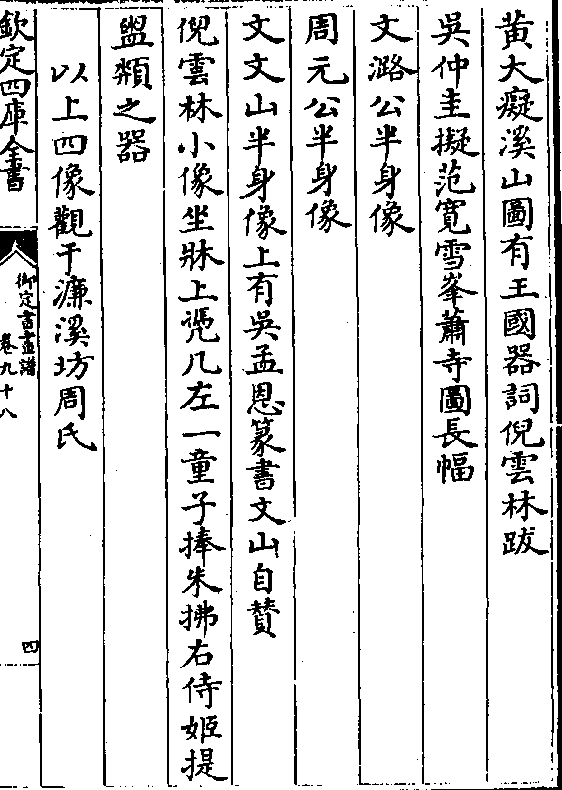 黄大癡溪山圖有王國器詞倪雲林跋
吳仲圭擬范寬雪峯蕭寺圖長幅
文潞公半身像
周元公半身像
文文山半身像上有吳孟恩篆書文山自贊
倪雲林小像坐牀上凴几左一童子捧朱拂右侍姬提
盥類之器
以上四像觀于濂溪坊周氏
欽定四庫全書
御定書畫譜
卷九十八
四